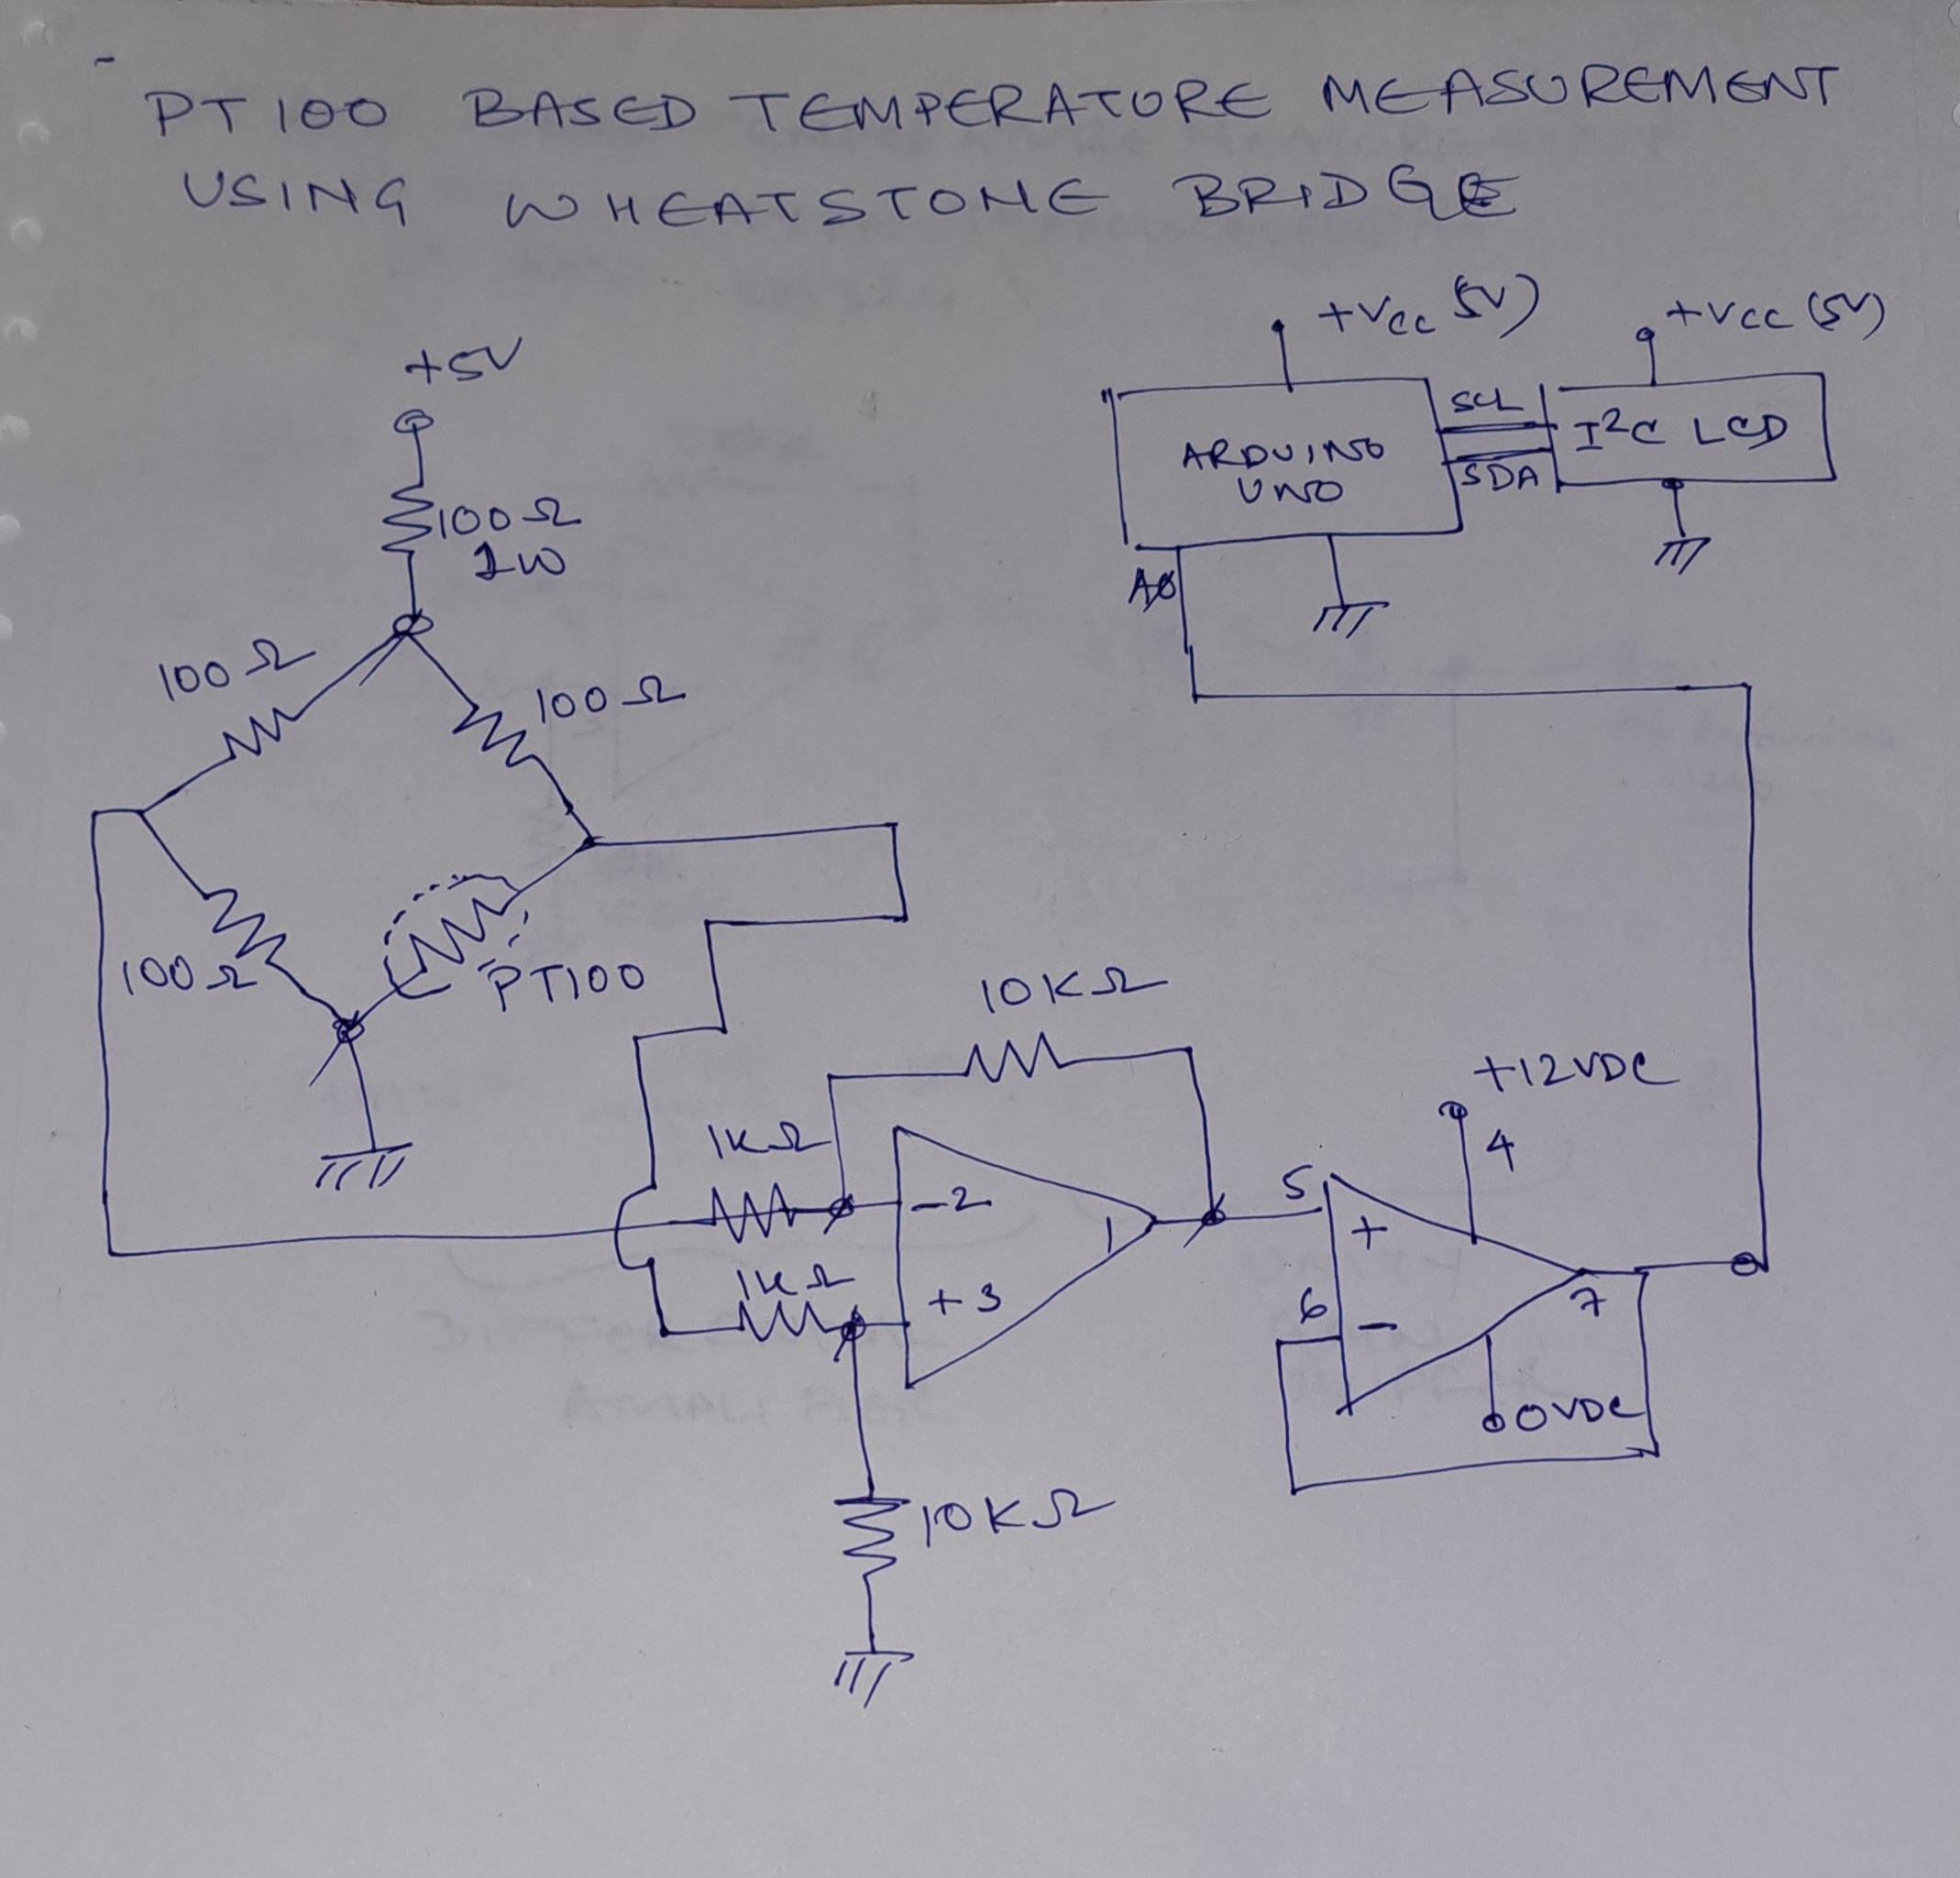 PT100 BASED TEMPERATURE MEASUREMENT
USING WHEATSTONE BRIDGE
+Vcc (5V)
+Vcc (5V)
+5V
SCL
I²C LCD
ARDUINO
UNO
SDA
100Ω
1W
A0
100Ω
100Ω
100Ω
PT100
10KΩ
+12VDC
4
1KΩ
-2
1
5
+
1KΩ
+3
6
-
7
0VDC
10KΩ